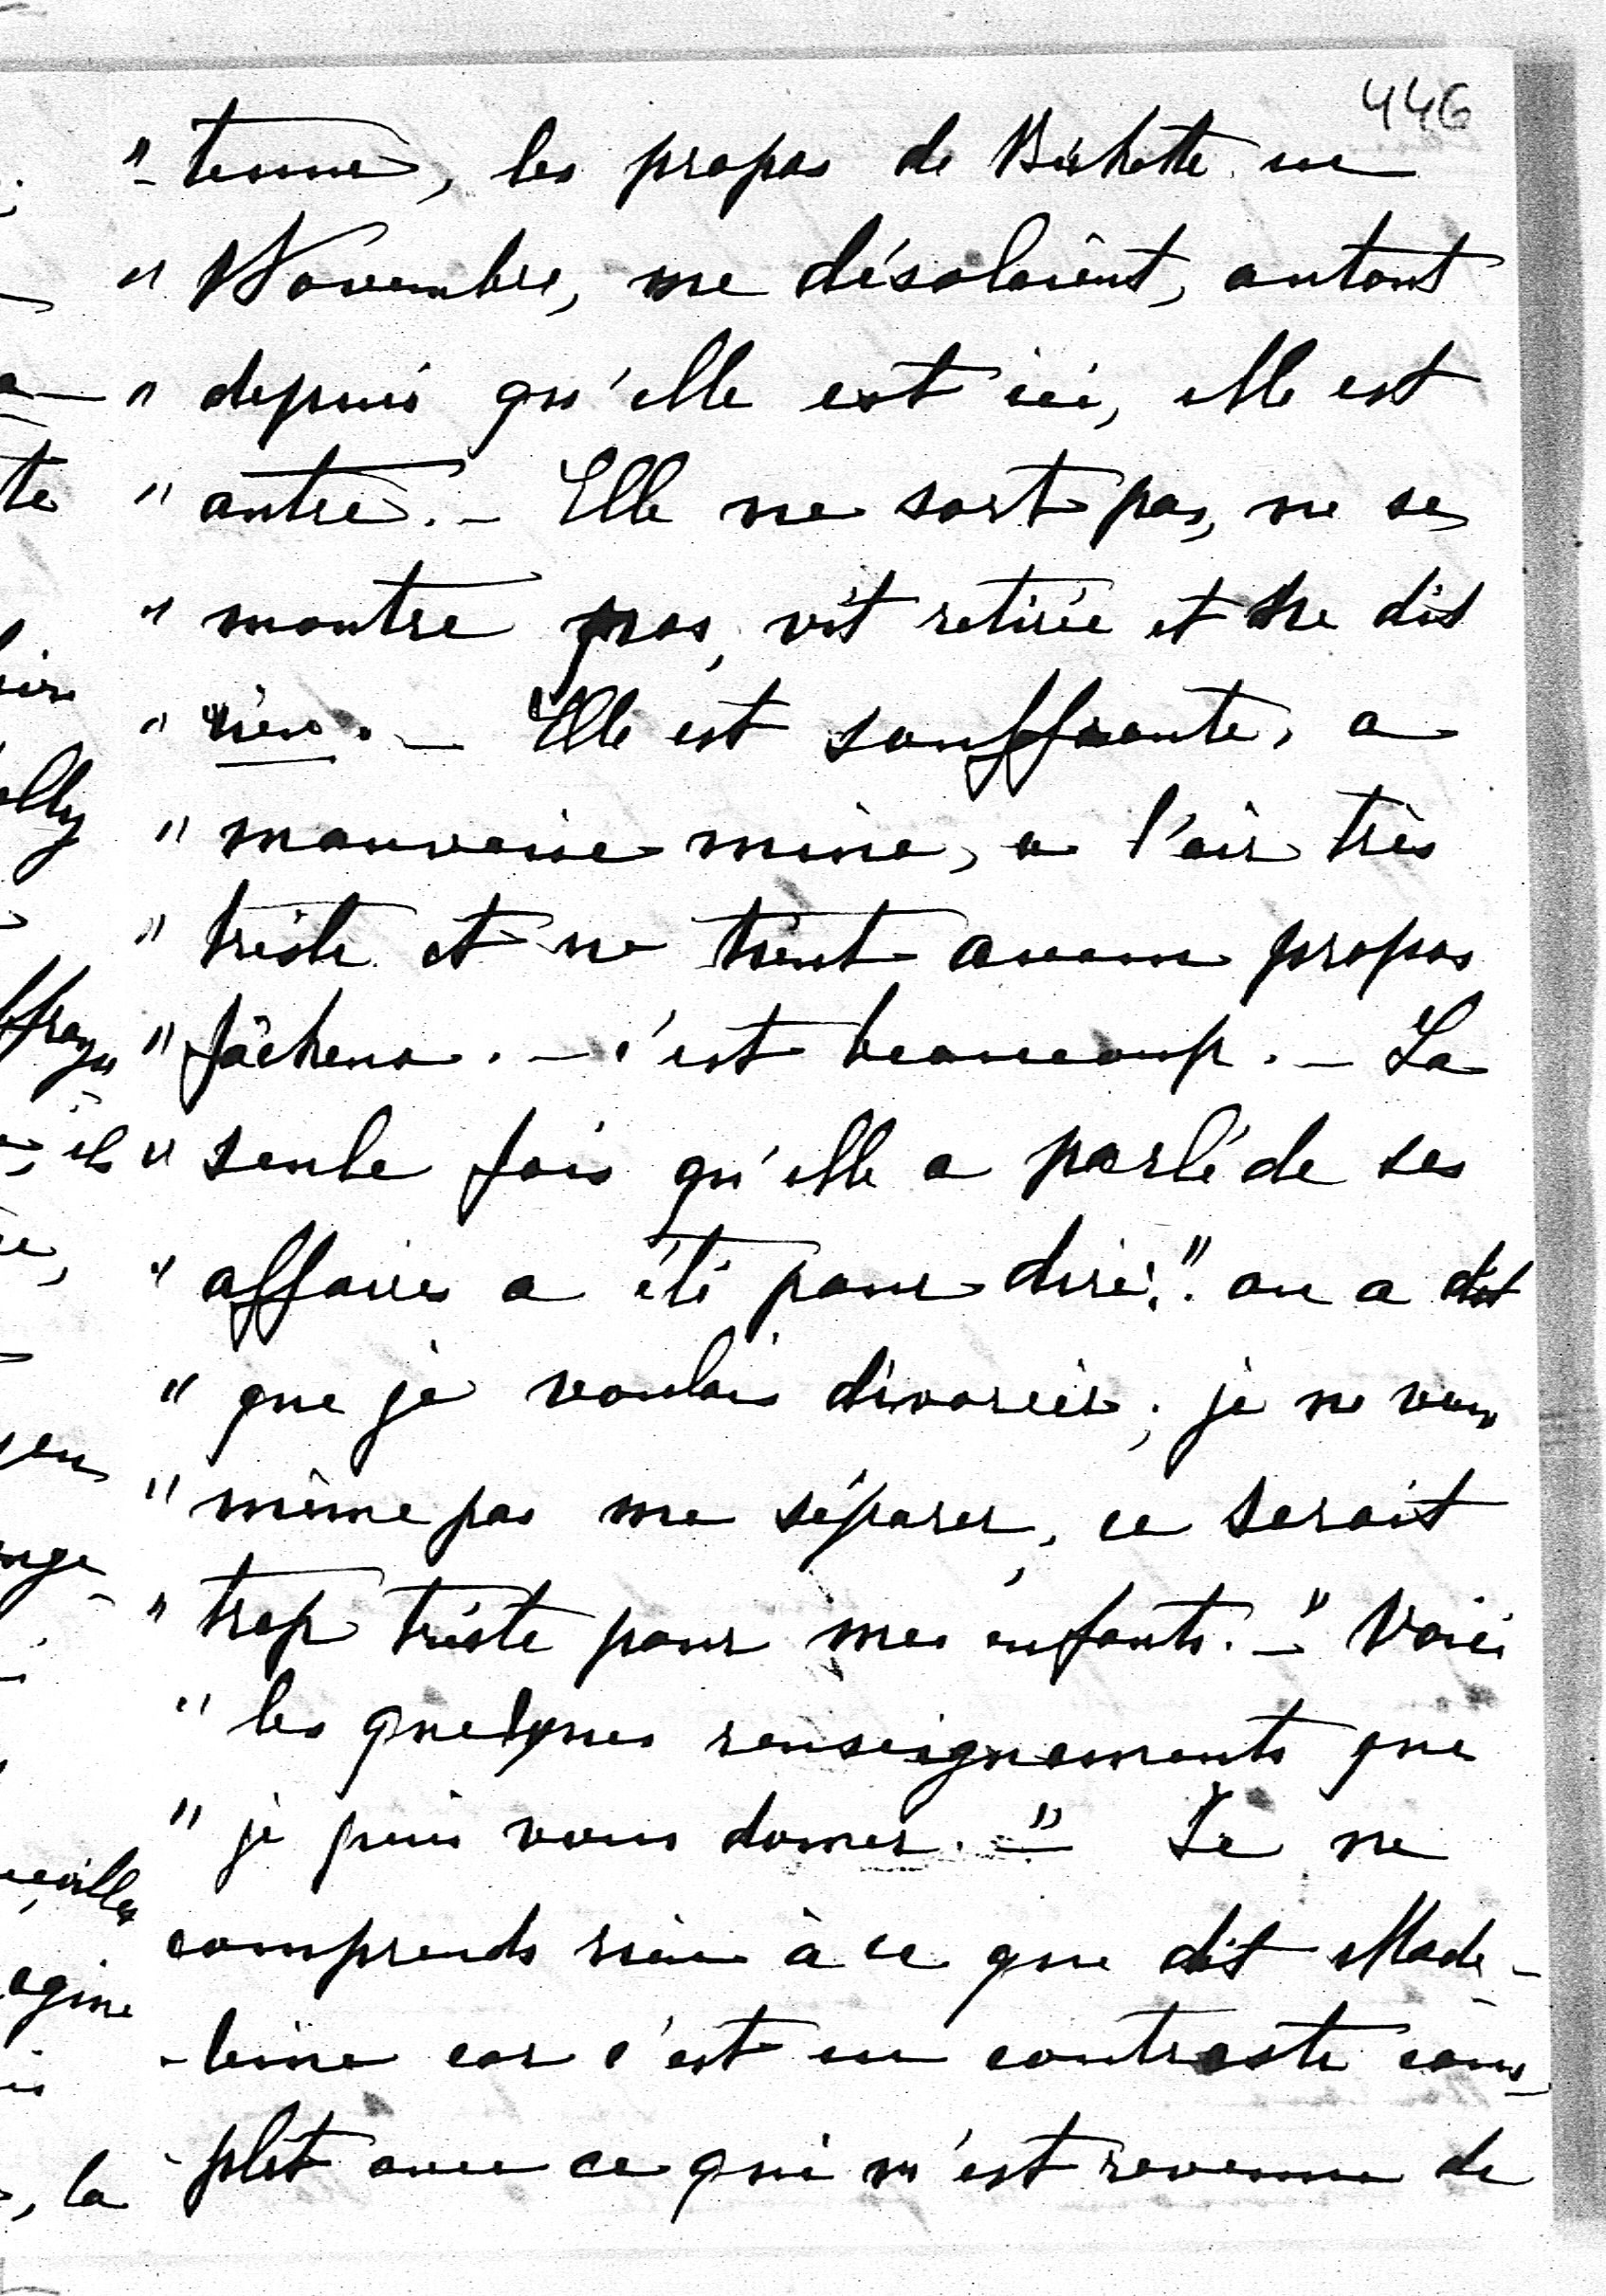 446
"-tenue, les propos de Bichette en
" Novembre, me désolaient, autant
" depuis qu'elle est ici, elle est
" autre. - Elle ne sort pas, ne se
" montre pas, vit retirée et ne dit
" rien. - Elle est souffrante, a
" mauvaise mine, a l'air très
" triste et ne tient aucun propos
" fâcheux. - c'est beaucoup. - La
" seule fois qu'elle a parlé de ses
" affaires a été pour dire: " on a dit
" que je voulais divorcer; je ne veux
" même pas me séparer, ce serait
" trop triste pour mes enfants. -" Voici
" les quelques renseignements que
" je puis vous donner. -" Je ne
comprends rien à ce que dit Made-
-leine car c'est un contraste com-
-plet avec ce qui m'est revenu de